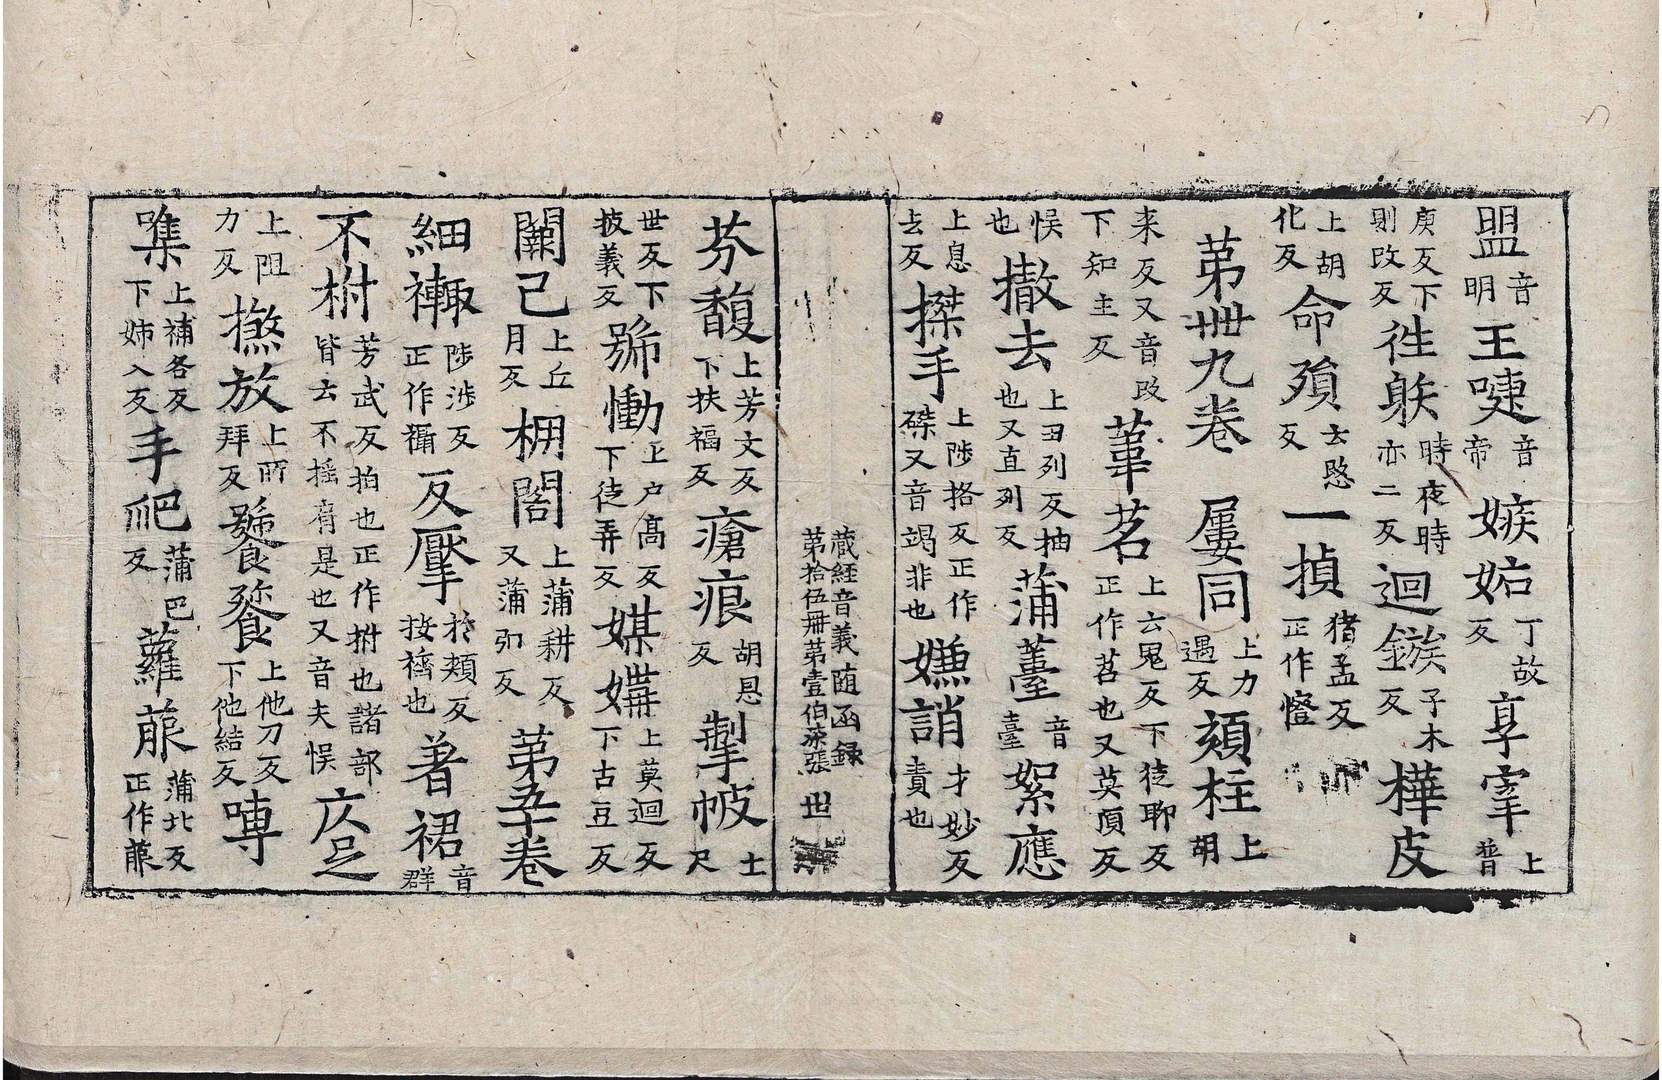 盟音明王嚏音帝嫉妬丁故反享宰上普
庚反下則改反徃躲時夜時亦二反迴鏃子木反樺皮
上胡化反命殞云愍反一揁猪孟反正作憕
苐卌九卷　屢同上力遇反頦柱上胡
来反又音改下知主反葦茗上云鬼反下徒聊反正作苕也又莫頂反
悮也撤去上丑列反抽也又直列反蒲薹音臺絮應
上息去反搩手上陟挌反正作磔又音竭非也嫶誚才妙反責也
藏経音義随函録
第拾伍冊第壹伯柒張　世
芬馥上芳文反下扶福反瘡痕胡恩反掣帔上尺
世反下披義反號慟上户高反下徒弄反媒媾上莫迴反下古豆反
闚己上丘月反棚閣上蒲耕反又蒲𢎞反苐五十卷
細䩞陟渉反正作襵反擪扵頰反按擫也著裙音群
不柎芳武反拍也正作拊也諸部皆云不摇脊是也又音夫悮庂足
上阻力反撚放上所拜反饕餮上他刀反下他結反嚩
㗱上補各反下姊入反手爬蒲巴反蘿菔蒲北反正作菔